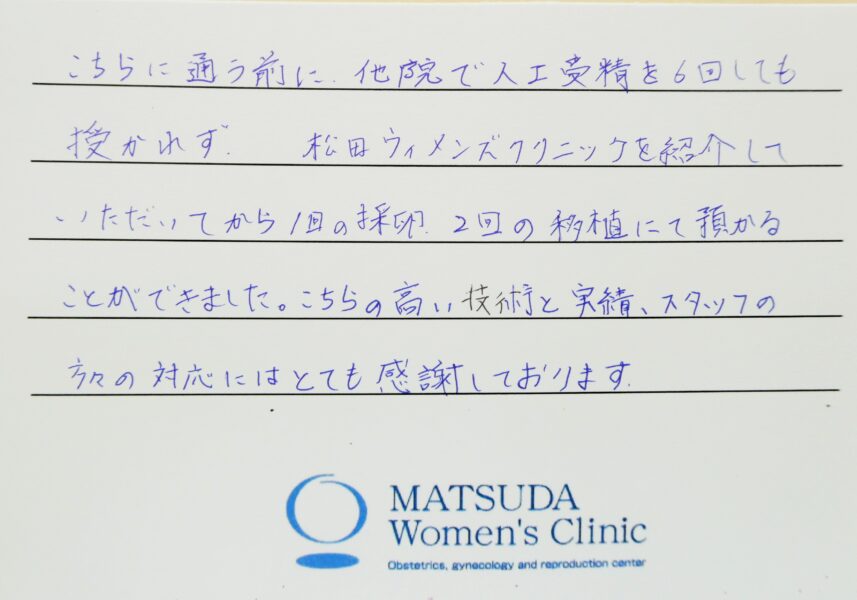 こちらに通う前に、他院で人工受精を6回しても
授かれず、 松田ウィメンズクリニックを紹介して
いただいてから1回の採卵、2回の移植にて預かる
ことができました。こちらの高い技術と実績、スタッフの
方々の対応にはとても感謝しております。
MATSUDA
Women's Clinic
Obstetrics, gynecology and reproduction center